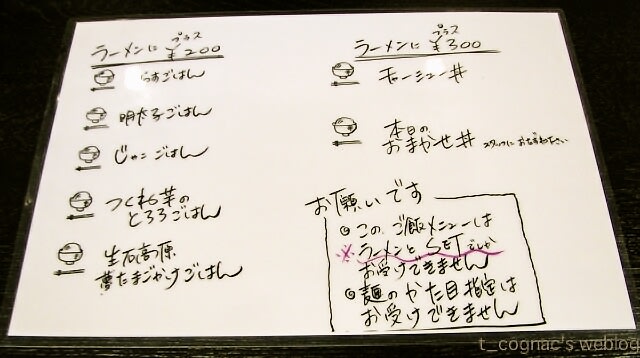 ラーメンに プラス ¥200
らすごはん
明太子ごはん
じゃこごはん
つくね芋の
とろろごはん
生石高原
夢たまごかけごはん
ラーメンに プラス ¥300
チャーシュー丼
本日の
おまかせ丼 スタッフにおたずね下さい
お願いです
◎この ご飯メニューは
※ラーメンと SETでしか
お受けできません
◎麺のかため指定は
お受けできません
t_cognac's weblog